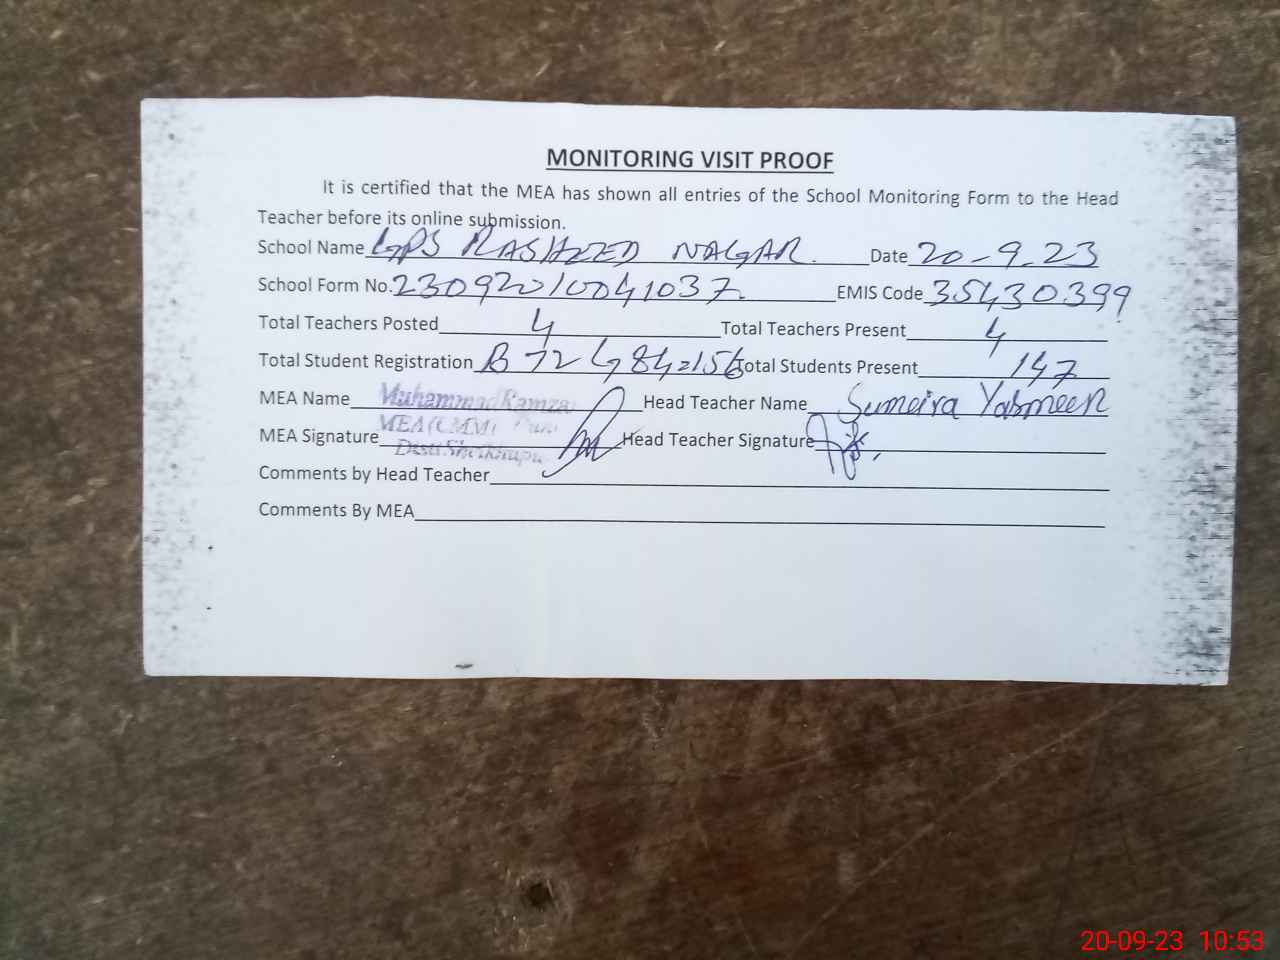 MONITORING VISIT PROOF
It is certified that the MEA has shown all entries of the School Monitoring Form to the Head
Teacher before its online submission.
School Name GPS RASHEED NAGAR. Date 20-9-23
School Form No. 23092010041037 EMIS Code 35430399
Total Teachers Posted 4 Total Teachers Present 4
Total Student Registration B 72 G 84=156 Total Students Present 147
MEA Name Muhammad Ramzan Head Teacher Name Sumeira Yasmeen
MEA (CMM)
MEA Signature Head Teacher Signature
Distt Sheikhupura
Comments by Head Teacher
Comments By MEA
20-09-23 10:53